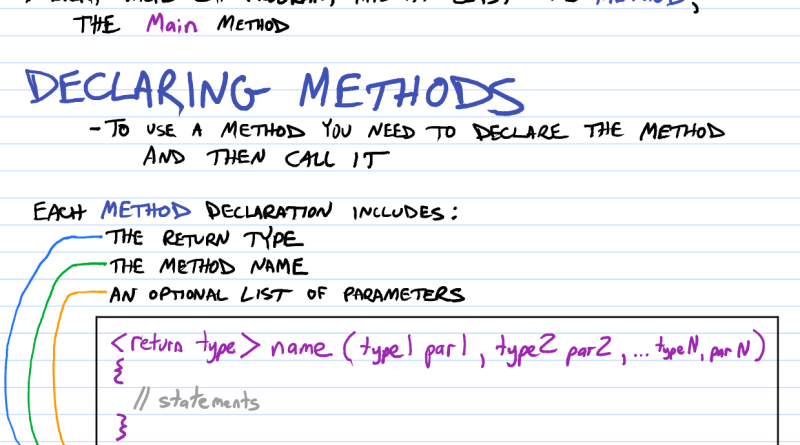 THE Main METHOD
DECLARING METHODS
- TO USE A METHOD YOU NEED TO DECLARE THE METHOD
AND THEN CALL IT
EACH METHOD DECLARATION INCLUDES:
THE RETURN TYPE
THE METHOD NAME
AN OPTIONAL LIST OF PARAMETERS
<return type> name (type1 par1, type2 par2, ... typeN, parN)
{
// statements
}